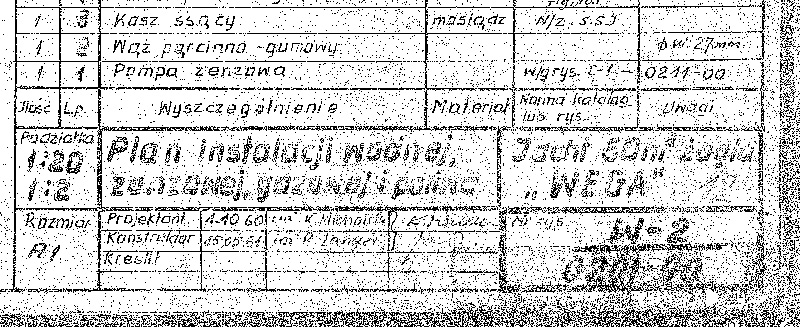 1 3 Kosz ssący mosiądz N/z. s.s.J
1 2 Wąż parciano-gumowy ϕw 27mm
1 1 Pompa zenzowa w/g rys. 0211-00
Ilość Lp. Wyszczególnienie Materiał Norma katalog lub rys. Uwagi
Podziałka
1:20
1:2
Plan instalacji wodnej,
zenzowej, gazowej i paliwa
Jacht 50m² żagla
„WEGA"
Rozmiar
A1
Projektant 1.10.60 inż. K.
Konstruktor inż. P. Langer
Kreślił
Nr rys.
W-2